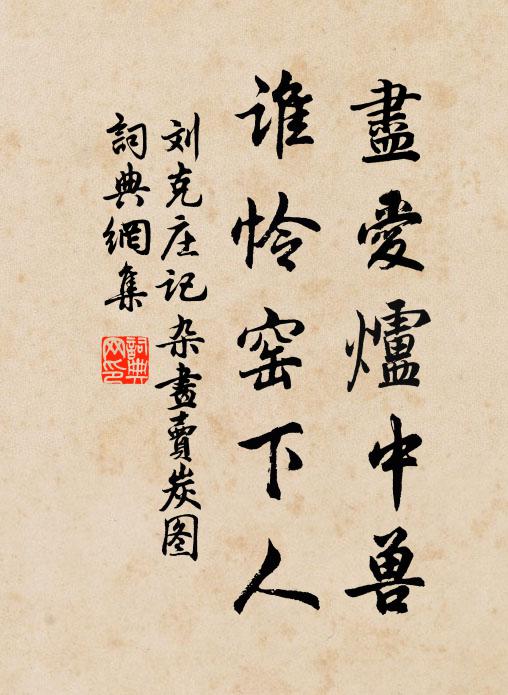 盡愛爐中兽
谁怜窑下人
刘克庄记杂畫賣炭图
詞典網集
詞典網印